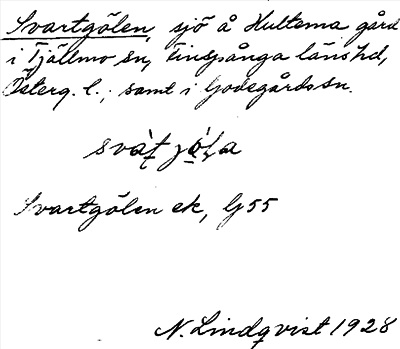 Svartgölen, sjö å Hultema gård
i Tjällmo sn, Finspånga länshd,
Österg. l.; samt i Godegårds sn.
Svartgölen ek, G 55
N. Lindqvist 1928